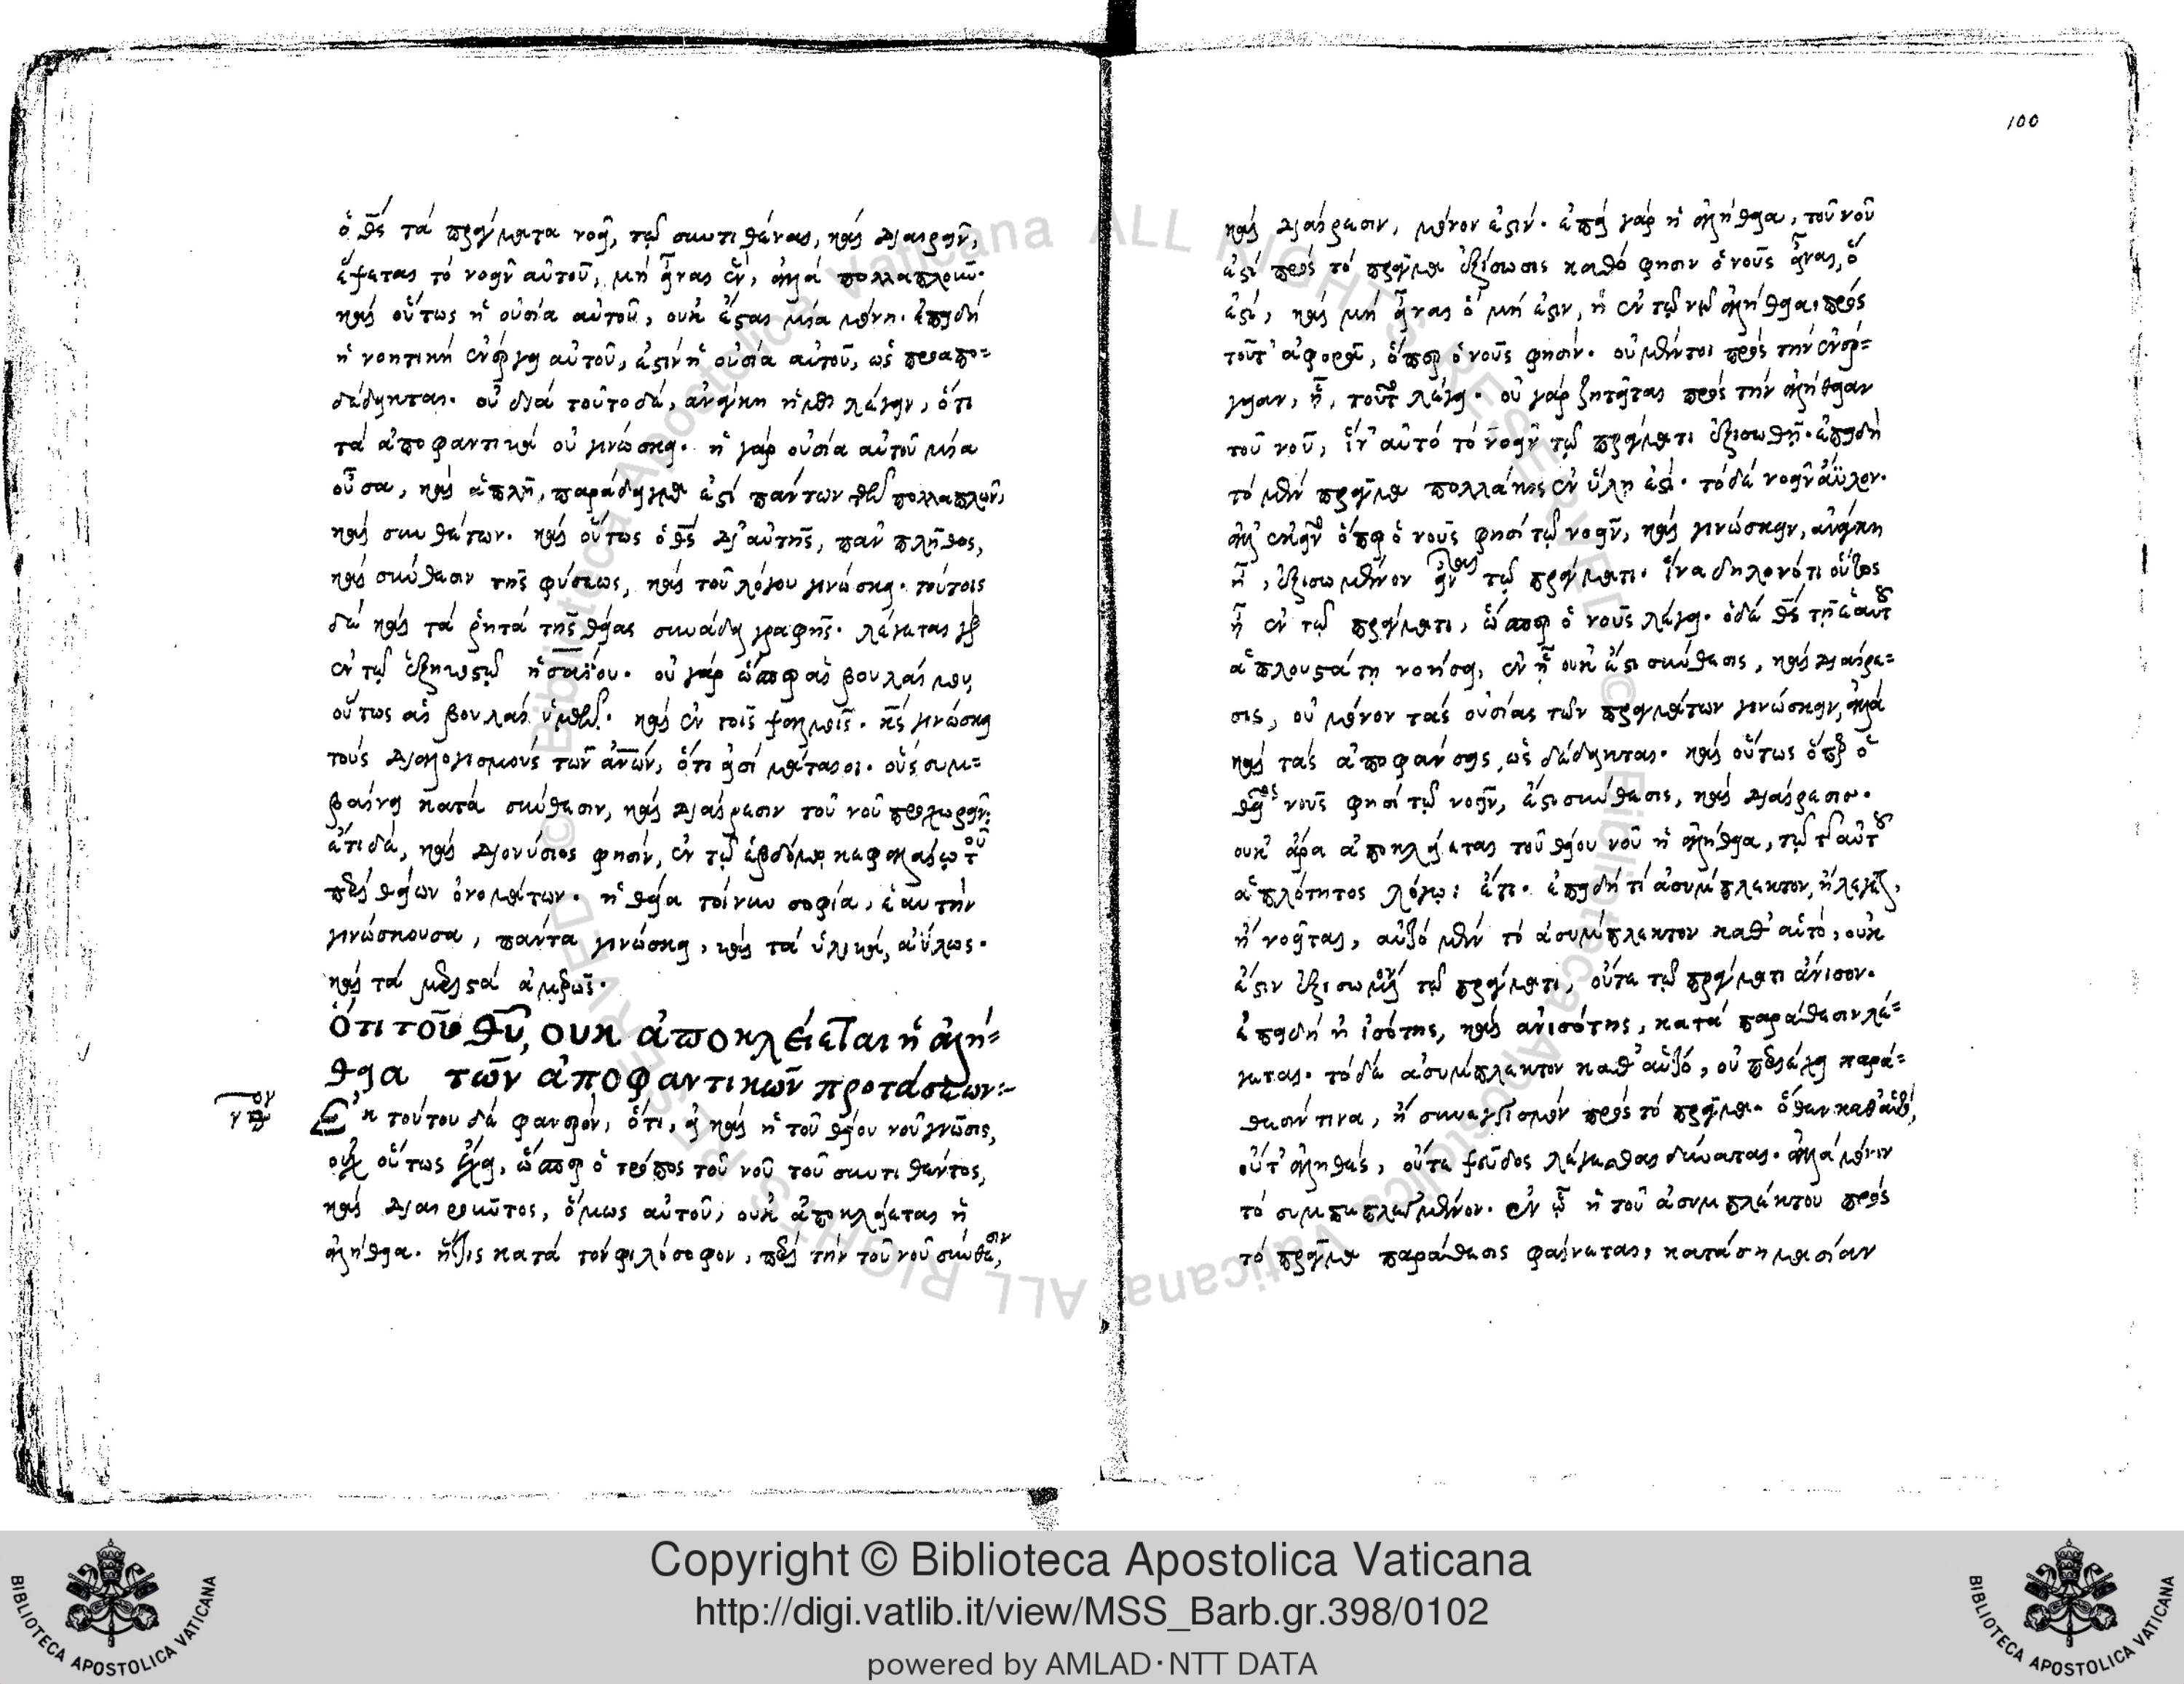 ὁ θς τὰ πράγματα νοεῖ, τῷ συντιθέναι, καὶ διαιρεῖν,
ἕψεται τὸ νοεῖν αὐτοῦ, μὴ εἶναι ἓν, ἀλλὰ πολλαπλοῦν·
καὶ οὕτως ἡ οὐσία αὐτοῦ, οὐκ ἔσται μία μόνη· ἐπειδὴ
ἡ νοητικὴ ἐνέργεια αὐτοῦ, ἐστὶν ἡ οὐσία αὐτοῦ, ὡς προαπο=
δέδεικται. οὐ διὰ τοῦτο δὲ, ἀνάγκη ἡμᾶς λέγειν, ὅτι
τὰ ἀποφαντικὰ οὐ γινώσκει. ἡ γὰρ οὐσία αὐτοῦ μία
οὖσα, καὶ ἁπλῆ, παράδειγμα ἐστὶ πάντων τῶν πολλαπλῶν,
καὶ συνθέτων. καὶ οὕτως ὁ θς δι' αὐτῆς, πᾶν πλῆθος,
καὶ σύνθεσιν τῆς φύσεως, καὶ τοῦ λόγου γινώσκει. τούτοις
δὲ καὶ τὰ ῥητὰ τῆς θείας συνάδει γραφῆς. λέγεται γὰρ
ἐν τῷ ἑξηκοστῷ ἡσαΐου. οὐ γὰρ ὥσπερ αἱ βουλαί μου,
οὕτως αἱ βουλαὶ ὑμῶν. καὶ ἐν τοῖς ψαλμοῖς. κς γινώσκει
τοὺς διαλογισμοὺς τῶν ἀνων, ὅτι εἰσὶ μάταιοι. οὓς συμ=
βαίνει κατὰ σύνθεσιν, καὶ διαίρεσιν τοῦ νοῦ προχωρεῖν.
ἔτι δὲ, καὶ διονύσιος φησὶν, ἐν τῷ ἑβδόμῳ κεφαλαίῳ τοῦ
περὶ θείων ὀνομάτων. ἡ θεία τοίνυν σοφία, ἑαυτὴν
γινώσκουσα, πάντα γινώσκει, καὶ τὰ ὑλικὰ, ἀΰλως.
καὶ τὰ μεριστὰ ἀμερῶς.
Ὅτι τοῦ θυ, οὐκ ἀποκλείεται ἡ ἀλή=
θεια τῶν ἀποφαντικῶν προτάσεων:-
Ἐκ τούτου δὲ φανερὸν, ὅτι, εἰ καὶ ἡ τοῦ θείου νοῦ γνῶσις,
οὐχ οὕτως ἔχει, ὥσπερ ὁ τρόπος τοῦ νοῦ τοῦ συντιθέντος,
καὶ διαιροῦντος, ὅμως αὐτοῦ, οὐκ ἀποκλείεται ἡ
ἀλήθεια. ἥτις κατὰ τὸν φιλόσοφον, περὶ τὴν τοῦ νοῦ σύνθεσιν,
100
καὶ διαίρεσιν, μόνον ἐστίν. ἐπεὶ γὰρ ἡ ἀλήθεια, τοῦ νοῦ
ἐστὶ πρὸς τὸ πρᾶγμα ἐξίσωσις καθὸ φησὶν ὁ νοῦς εἶναι, ὅ
ἐστι, καὶ μὴ εἶναι ὃ μή ἐστιν, ἡ ἐν τῷ νῷ ἀλήθεια, πρὸς
τοῦτ' ἀφορᾷ, ὅπερ ὁ νοῦς φησίν. οὐ μέντοι πρὸς τὴν ἐνέρ=
γειαν, ᾗ, τοῦτο λέγει. οὐ γὰρ ζητεῖται πρὸς τὴν ἀλήθειαν
τοῦ νοῦ, ἵν' αὐτὸ τὸ νοεῖν τῷ πράγματι ἐξισωθῇ. ἐπειδὴ
τὸ μὲν πρᾶγμα πολλάκις ἐν ὕλῃ ἐστὶ. τὸ δὲ νοεῖν ἄϋλον.
ἀλλ' ἐκεῖνο ὅπερ ὁ νοῦς φησὶ τῷ νοεῖν, καὶ γινώσκειν, ἀνάγκη
ᾗ, ἐξισωμένον εἶναι τῷ πράγματι. ἵνα δηλονότι οὕτως
ᾖ ἐν τῷ πράγματι, ὥσπερ ὁ νοῦς λέγει. ὁ δὲ θς τῇ ἑαυτοῦ
ἁπλουστάτῃ νοήσει, ἐν ᾗ οὐκ ἔστι σύνθεσις, καὶ διαίρε=
σις, οὐ μόνον τὰς οὐσίας τῶν πραγμάτων γινώσκει, ἀλλὰ
καὶ τὰς ἀποφάνσεις, ὡς δέδεικται. καὶ οὕτως ὅπερ ὁ
θεῖος νοῦς φησὶ τῷ νοεῖν, ἐστὶ σύνθεσις, καὶ διαίρεσις.
οὐκ ἄρα ἀποκλείεται τοῦ θείου νοῦ ἡ ἀλήθεια, τῷ τῆς αὐτοῦ
ἁπλότητος λόγῳ: ἔτι. ἐπειδὴ τὶ ἀσύμπλεκτον, ἢ λέγεται,
ἢ νοεῖται, αὐτὸ μὲν τὸ ἀσύμπλεκτον καθ' αὑτὸ, οὐκ
ἔστιν ἐξισωμένον τῷ πράγματι, οὔτε τῷ πράγματι ἄνισον.
ἐπειδὴ ἡ ἰσότης, καὶ ἀνισότης, κατὰ παράθεσιν λέ=
γεται. τὸ δὲ ἀσύμπλεκτον καθ' αὑτὸ, οὐ περιέχει παρά=
θεσίν τινα, ἢ συναγγισμὸν πρὸς τὸ πρᾶγμα. ὅθεν καθ' αὑτὸ,
οὔτ' ἀληθὲς, οὔτε ψεῦδος λέγεσθαι δύναται. ἀλλὰ μόνον
τὸ συμπεπλεγμένον. ἐν ᾧ ἡ τοῦ ἀσυμπλέκτου πρὸς
τὸ πρᾶγμα παράθεσις φαίνεται, κατὰ σημασίαν
Copyright © Biblioteca Apostolica Vaticana
http://digi.vatlib.it/view/MSS_Barb.gr.398/0102
powered by AMLAD·NTT DATA
BIBLIOTECA APOSTOLICA VATICANA
BIBLIOTECA APOSTOLICA VATICANA